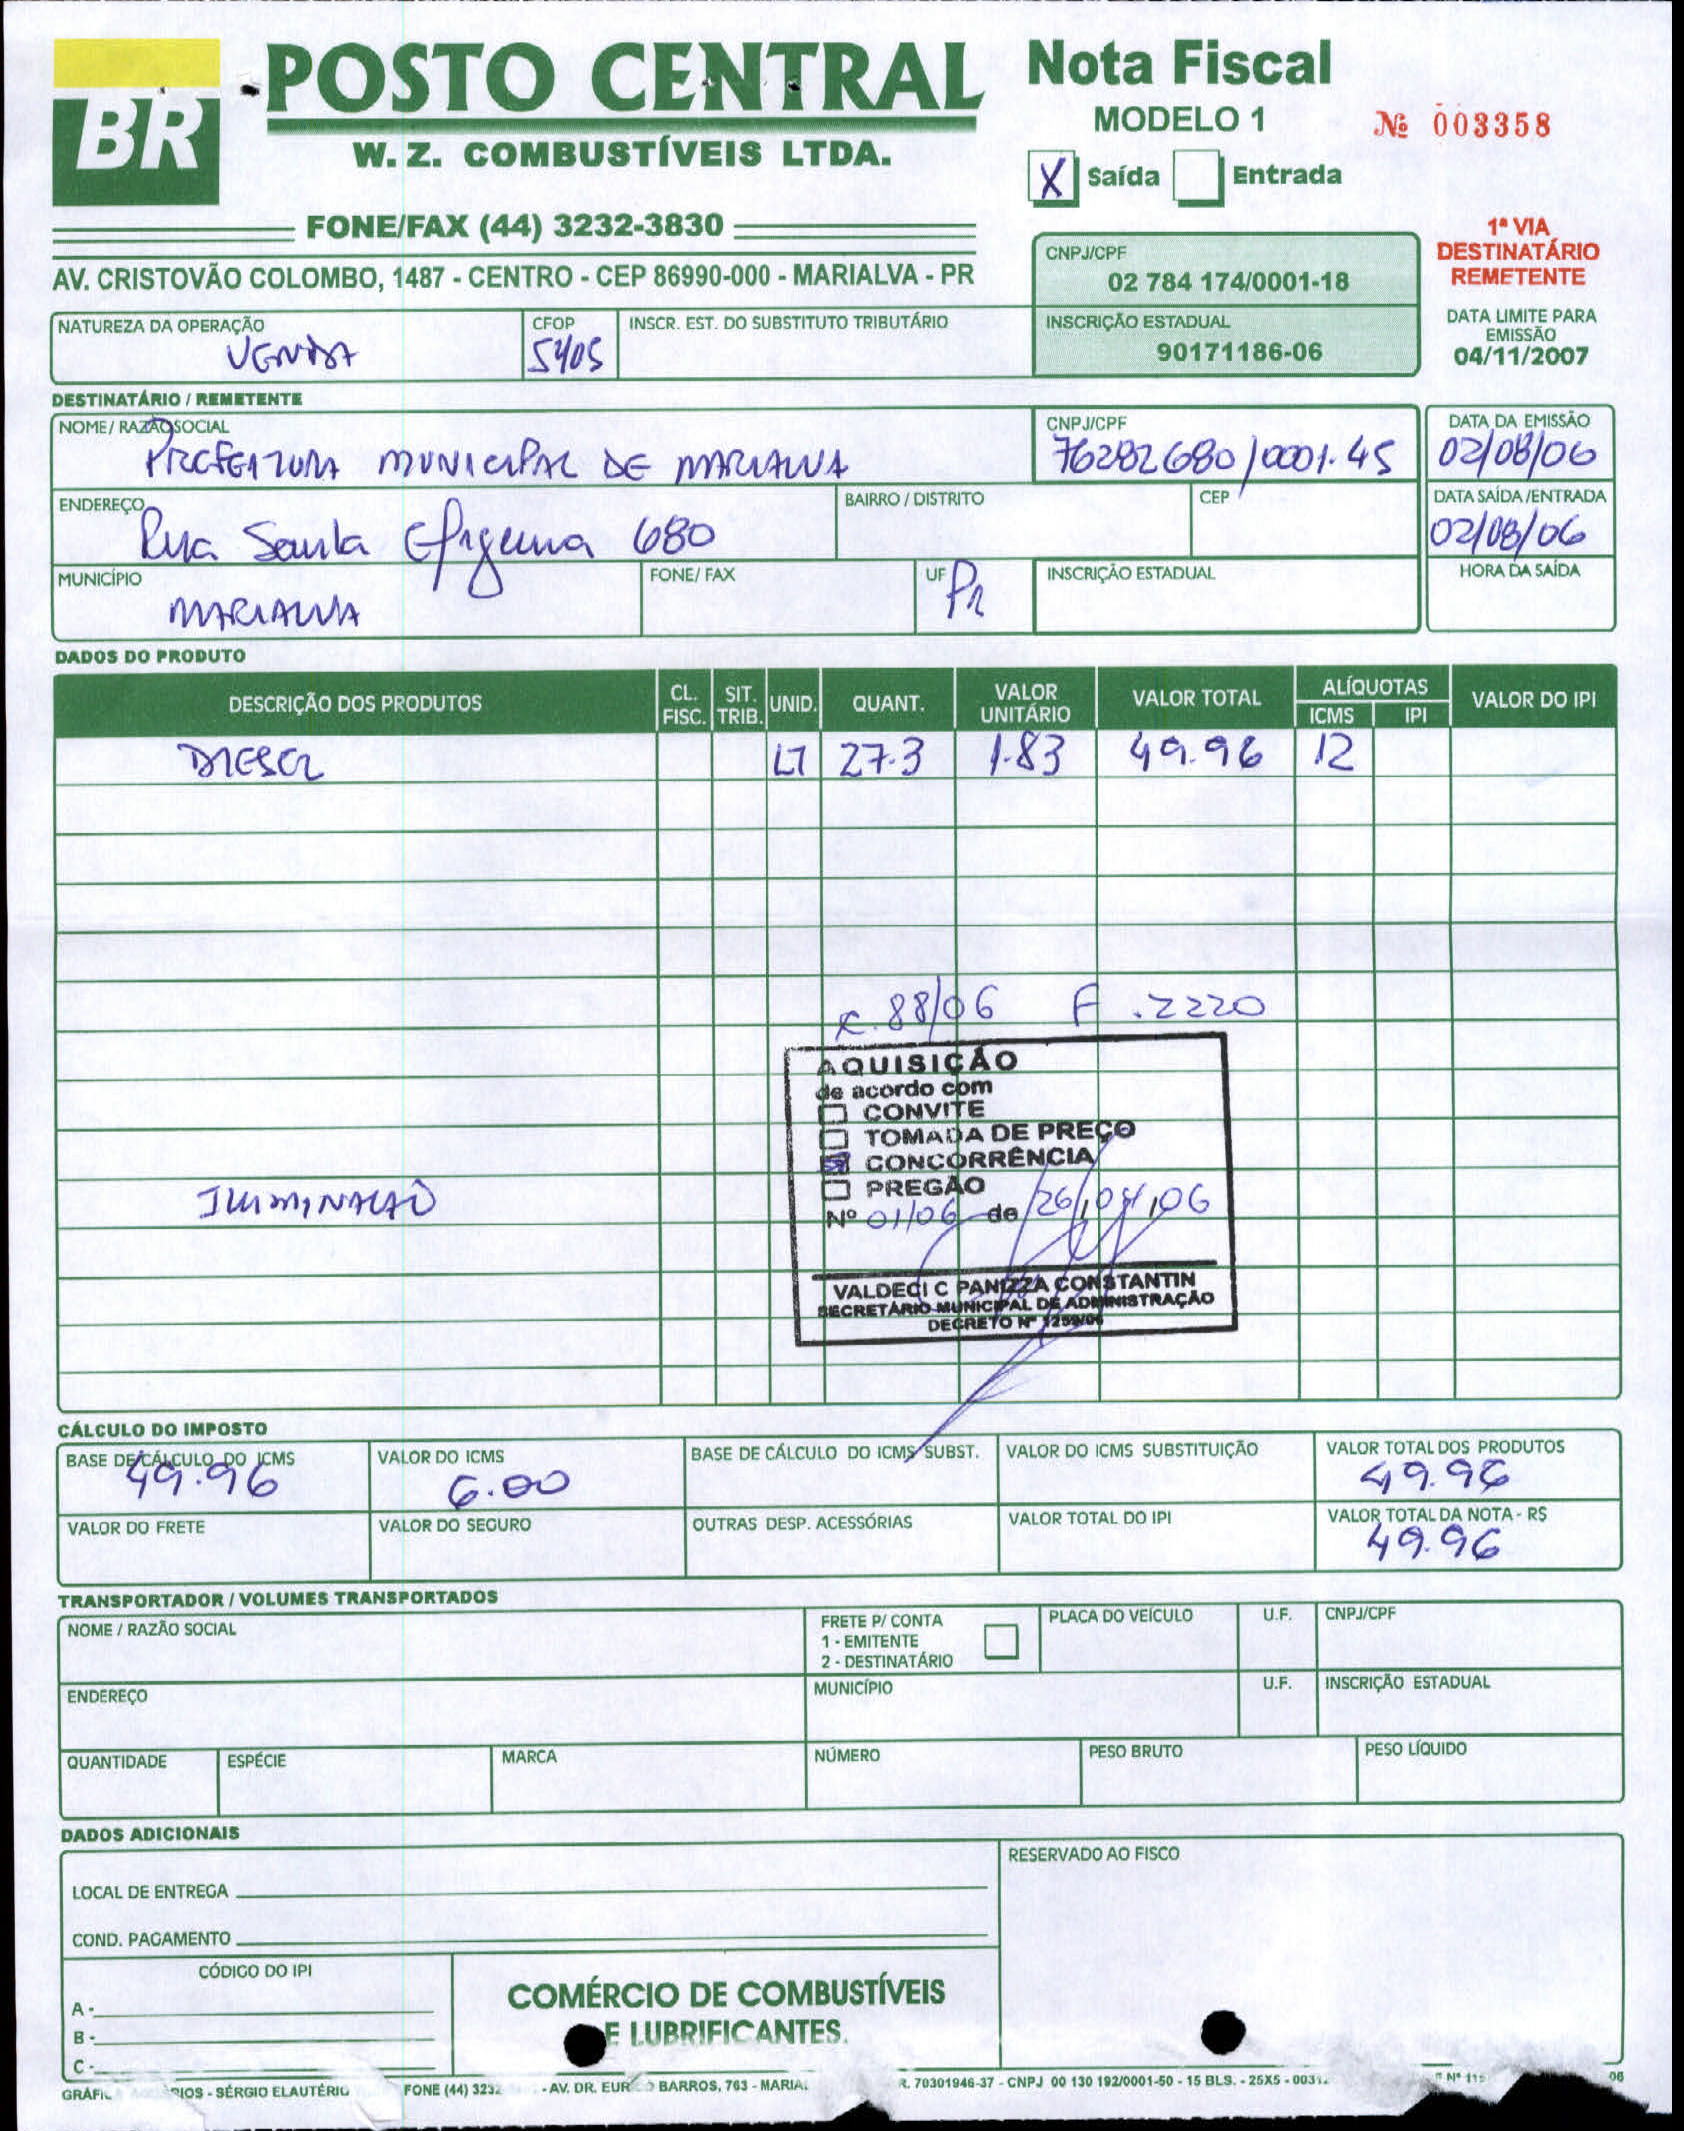 BR
POSTO CENTRAL
W. Z. COMBUSTÍVEIS LTDA.
FONE/FAX (44) 3232-3830
AV. CRISTOVÃO COLOMBO, 1487 - CENTRO - CEP 86990-000 - MARIALVA - PR
Nota Fiscal
MODELO 1
Nº 003358
X Saída Entrada
1ª VIA
DESTINATÁRIO
REMETENTE
CNPJ/CPF
02 784 174/0001-18
INSCRIÇÃO ESTADUAL
90171186-06
DATA LIMITE PARA
EMISSÃO
04/11/2007
NATUREZA DA OPERAÇÃO
VENDA
CFOP
5405
INSCR. EST. DO SUBSTITUTO TRIBUTÁRIO
DESTINATÁRIO / REMETENTE
NOME / RAZÃO SOCIAL
PREFEITURA MUNICIPAL DE MARIALVA
CNPJ/CPF
76282680/0001.45
DATA DA EMISSÃO
02/08/06
ENDEREÇO
Rua Santa Efigenia 680
BAIRRO / DISTRITO
CEP
DATA SAÍDA /ENTRADA
02/08/06
MUNICÍPIO
MARIALVA
FONE/ FAX
UF
Pr
INSCRIÇÃO ESTADUAL
HORA DA SAÍDA
DADOS DO PRODUTO
DESCRIÇÃO DOS PRODUTOS CL. FISC. SIT. TRIB. UNID. QUANT. VALOR UNITÁRIO VALOR TOTAL ALÍQUOTAS ICMS IPI VALOR DO IPI
DIESEL LT 27.3 1.83 49.96 12
88/06 F .2220
AQUISIÇÃO
de acordo com
CONVITE
TOMADA DE PREÇO
CONCORRÊNCIA
PREGÃO
Nº 01/06 de 26,04,06
ILUMINAÇÃO
VALDECI C PANIZZA CONSTANTIN
SECRETÁRIO MUNICIPAL DE ADMINISTRAÇÃO
DECRETO Nº 1259/06
CÁLCULO DO IMPOSTO
BASE DE CÁLCULO DO ICMS
49.96
VALOR DO ICMS
6.00
BASE DE CÁLCULO DO ICMS SUBST.
VALOR DO ICMS SUBSTITUIÇÃO
VALOR TOTAL DOS PRODUTOS
49.96
VALOR DO FRETE
VALOR DO SEGURO
OUTRAS DESP. ACESSÓRIAS
VALOR TOTAL DO IPI
VALOR TOTAL DA NOTA - R$
49.96
TRANSPORTADOR / VOLUMES TRANSPORTADOS
NOME / RAZÃO SOCIAL
FRETE P/ CONTA
1 - EMITENTE
2 - DESTINATÁRIO
PLACA DO VEÍCULO
U.F.
CNPJ/CPF
ENDEREÇO
MUNICÍPIO
U.F.
INSCRIÇÃO ESTADUAL
QUANTIDADE
ESPÉCIE
MARCA
NÚMERO
PESO BRUTO
PESO LÍQUIDO
DADOS ADICIONAIS
LOCAL DE ENTREGA
COND. PAGAMENTO
RESERVADO AO FISCO
CÓDIGO DO IPI
A -
B -
C -
COMÉRCIO DE COMBUSTÍVEIS
E LUBRIFICANTES.
- SÉRGIO ELAUTÉRIO FONE (44) - AV. DR. BARROS, 763 - 70301946-37 - CNPJ 00 130 192/0001-50 - 15 BLS. - 25X5 - 06